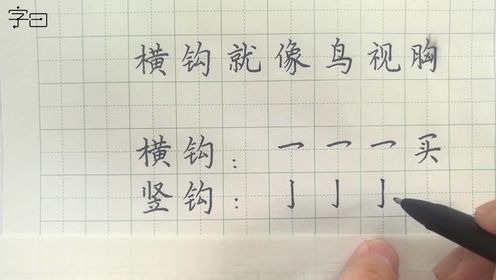 字曰
横钩就像鸟视胸
横钩：乛乛乛买
竖钩：亅亅亅